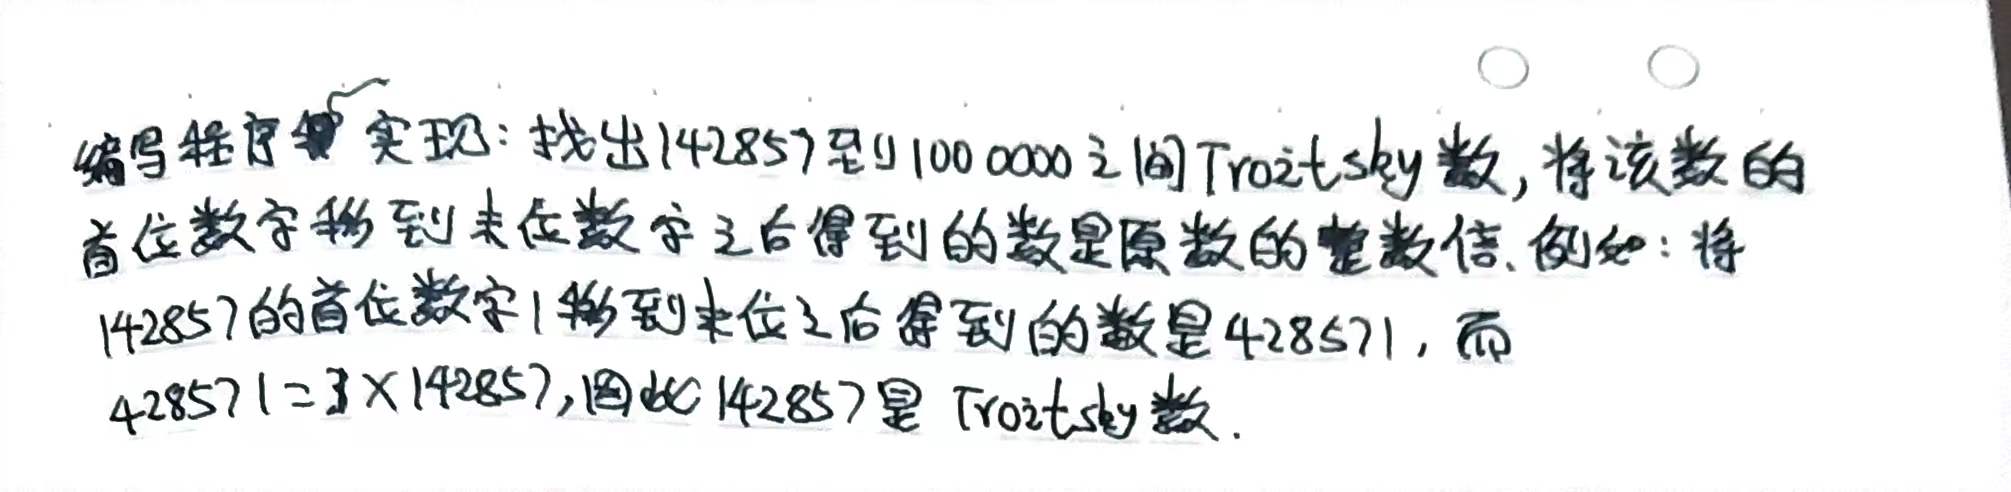 编写程序实现：找出142857到1000000之间Troitsky数，将该数的
首位数字移到末位数字之后得到的数是原数的整数倍.例如：将
142857的首位数字1移到末位之后得到的数是428571，而
428571=3×142857,因此142857是Troitsky数.